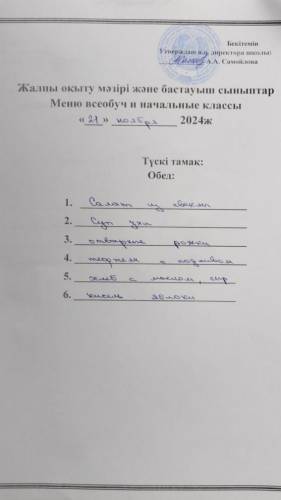 Бекітемін
Утверждаю и.о. директора школы:
А.А. Самойлова
Жалпы оқыту мәзірі және бастауыш сыныптар
Меню всеобуч и начальные классы
«21» ноября 2024ж
Түскі тамақ:
Обед:
1. Салат из свеклы
2. Суп
3. отварные рожки
4. тефтели с подливой
5. хлеб с маслом, сыр
6. кисель яблоки